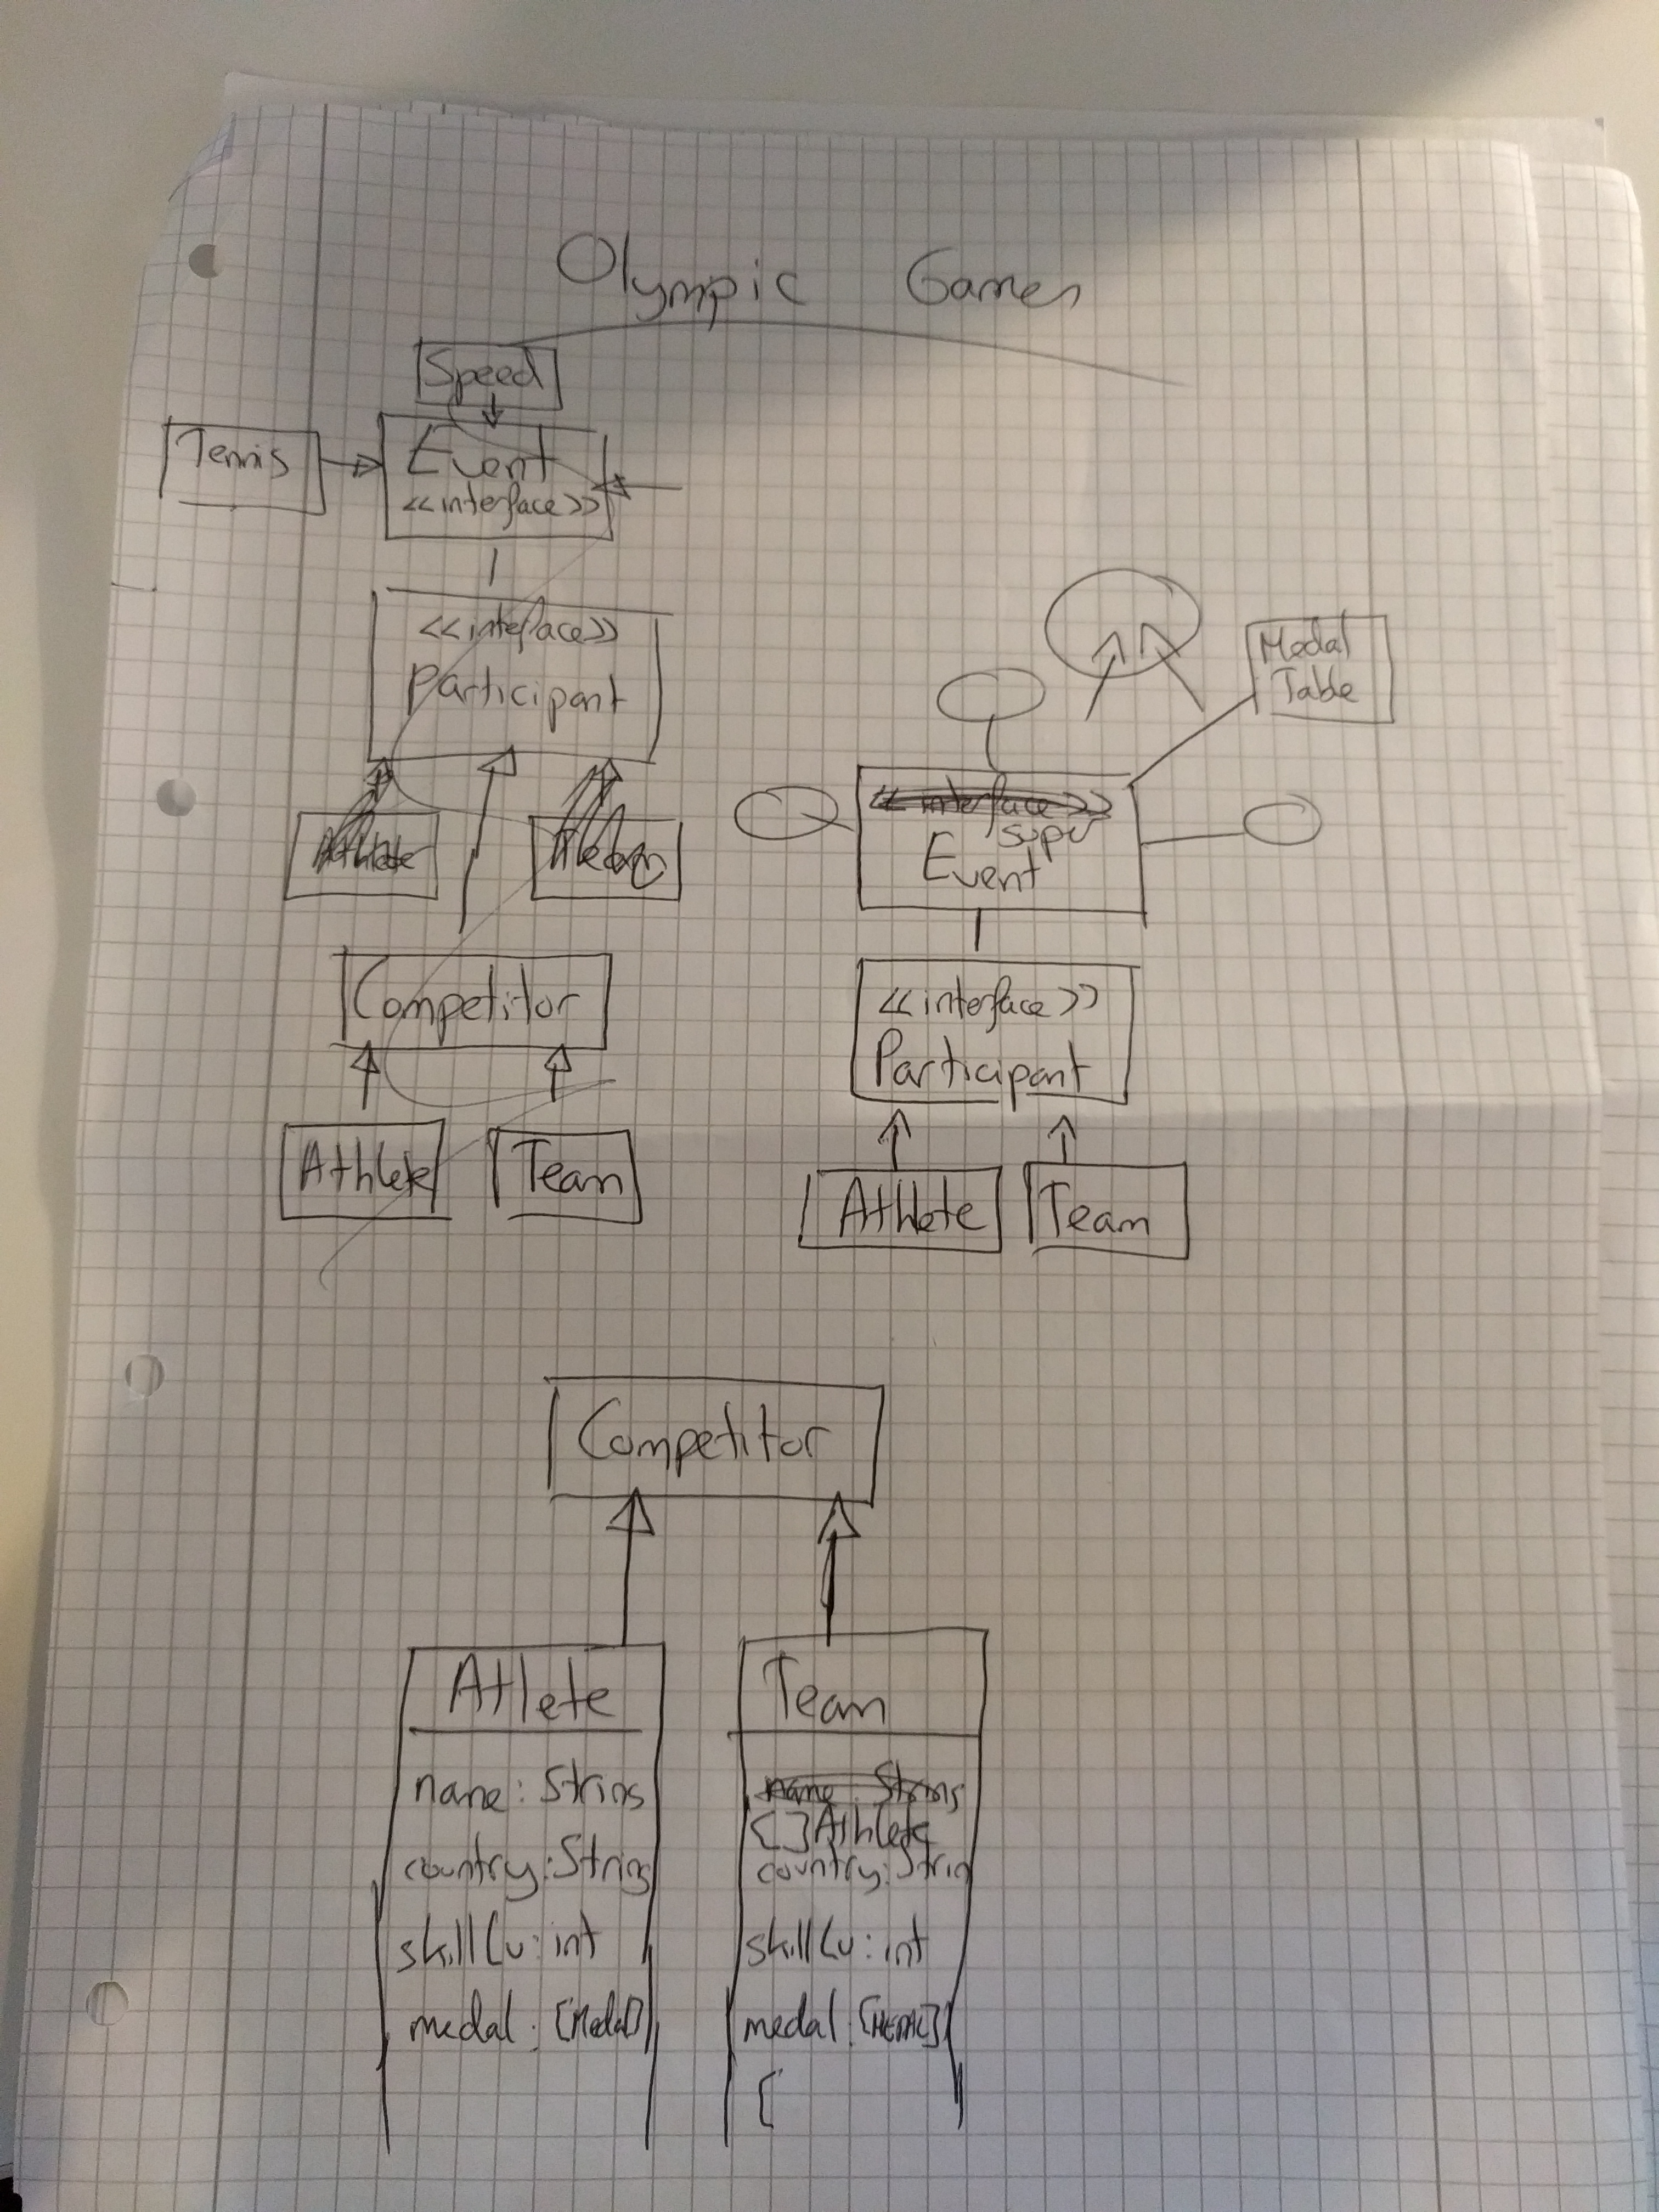 Olympic Games
Speed
Tennis
Event
<<interface>>
<<interface>>
Participant
Athlete
Team
Competitor
Athlete
Team
Medal
Table
<<interface>>
super
Event
<<interface>>
Participant
Athlete
Team
Competitor
Athlete
name: String
country: String
skillLv: int
medal: [Medal]
Team
name: String
[]Athlete
country: Strin
skillLv: int
medal: [MEDAL]
[